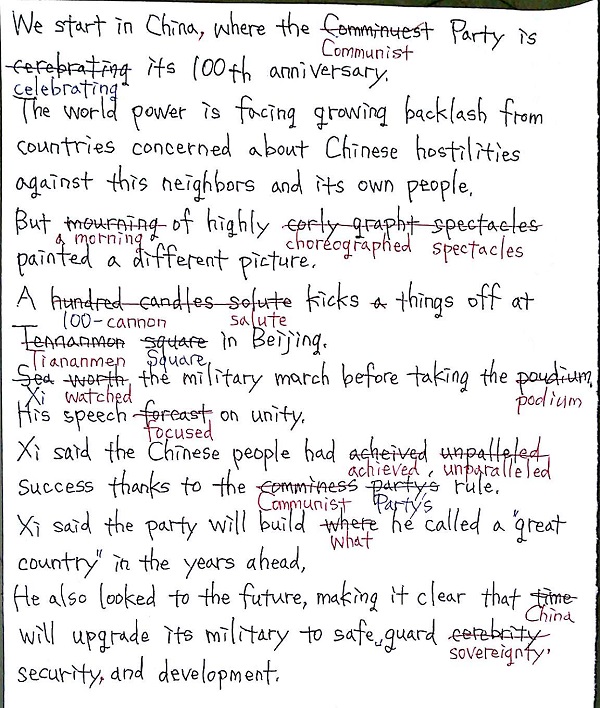 We start in China, where the Comminuest Party is
Communist
cerebrating its 100th anniversary.
celebrating
The world power is facing growing backlash from
countries concerned about Chinese hostilities
against this neighbors and its own people.
But mourning of highly corly grapht spectacles
a morning choreographed spectacles
painted a different picture.
A hundred candles solute kicks a things off at
100-cannon salute
Tennanmon square in Beijing.
Tiananmen Square
Sea worth the military march before taking the poudium.
Xi watched podium
His speech foreast on unity.
focused
Xi said the Chinese people had acheived unpalleled
achieved, unparalleled
success thanks to the comminess party's rule.
Communist Party's
Xi said the party will build where he called a "great
what
country" in the years ahead,
He also looked to the future, making it clear that time
China
will upgrade its military to safe guard cerebrity
sovereignty,
security, and development.